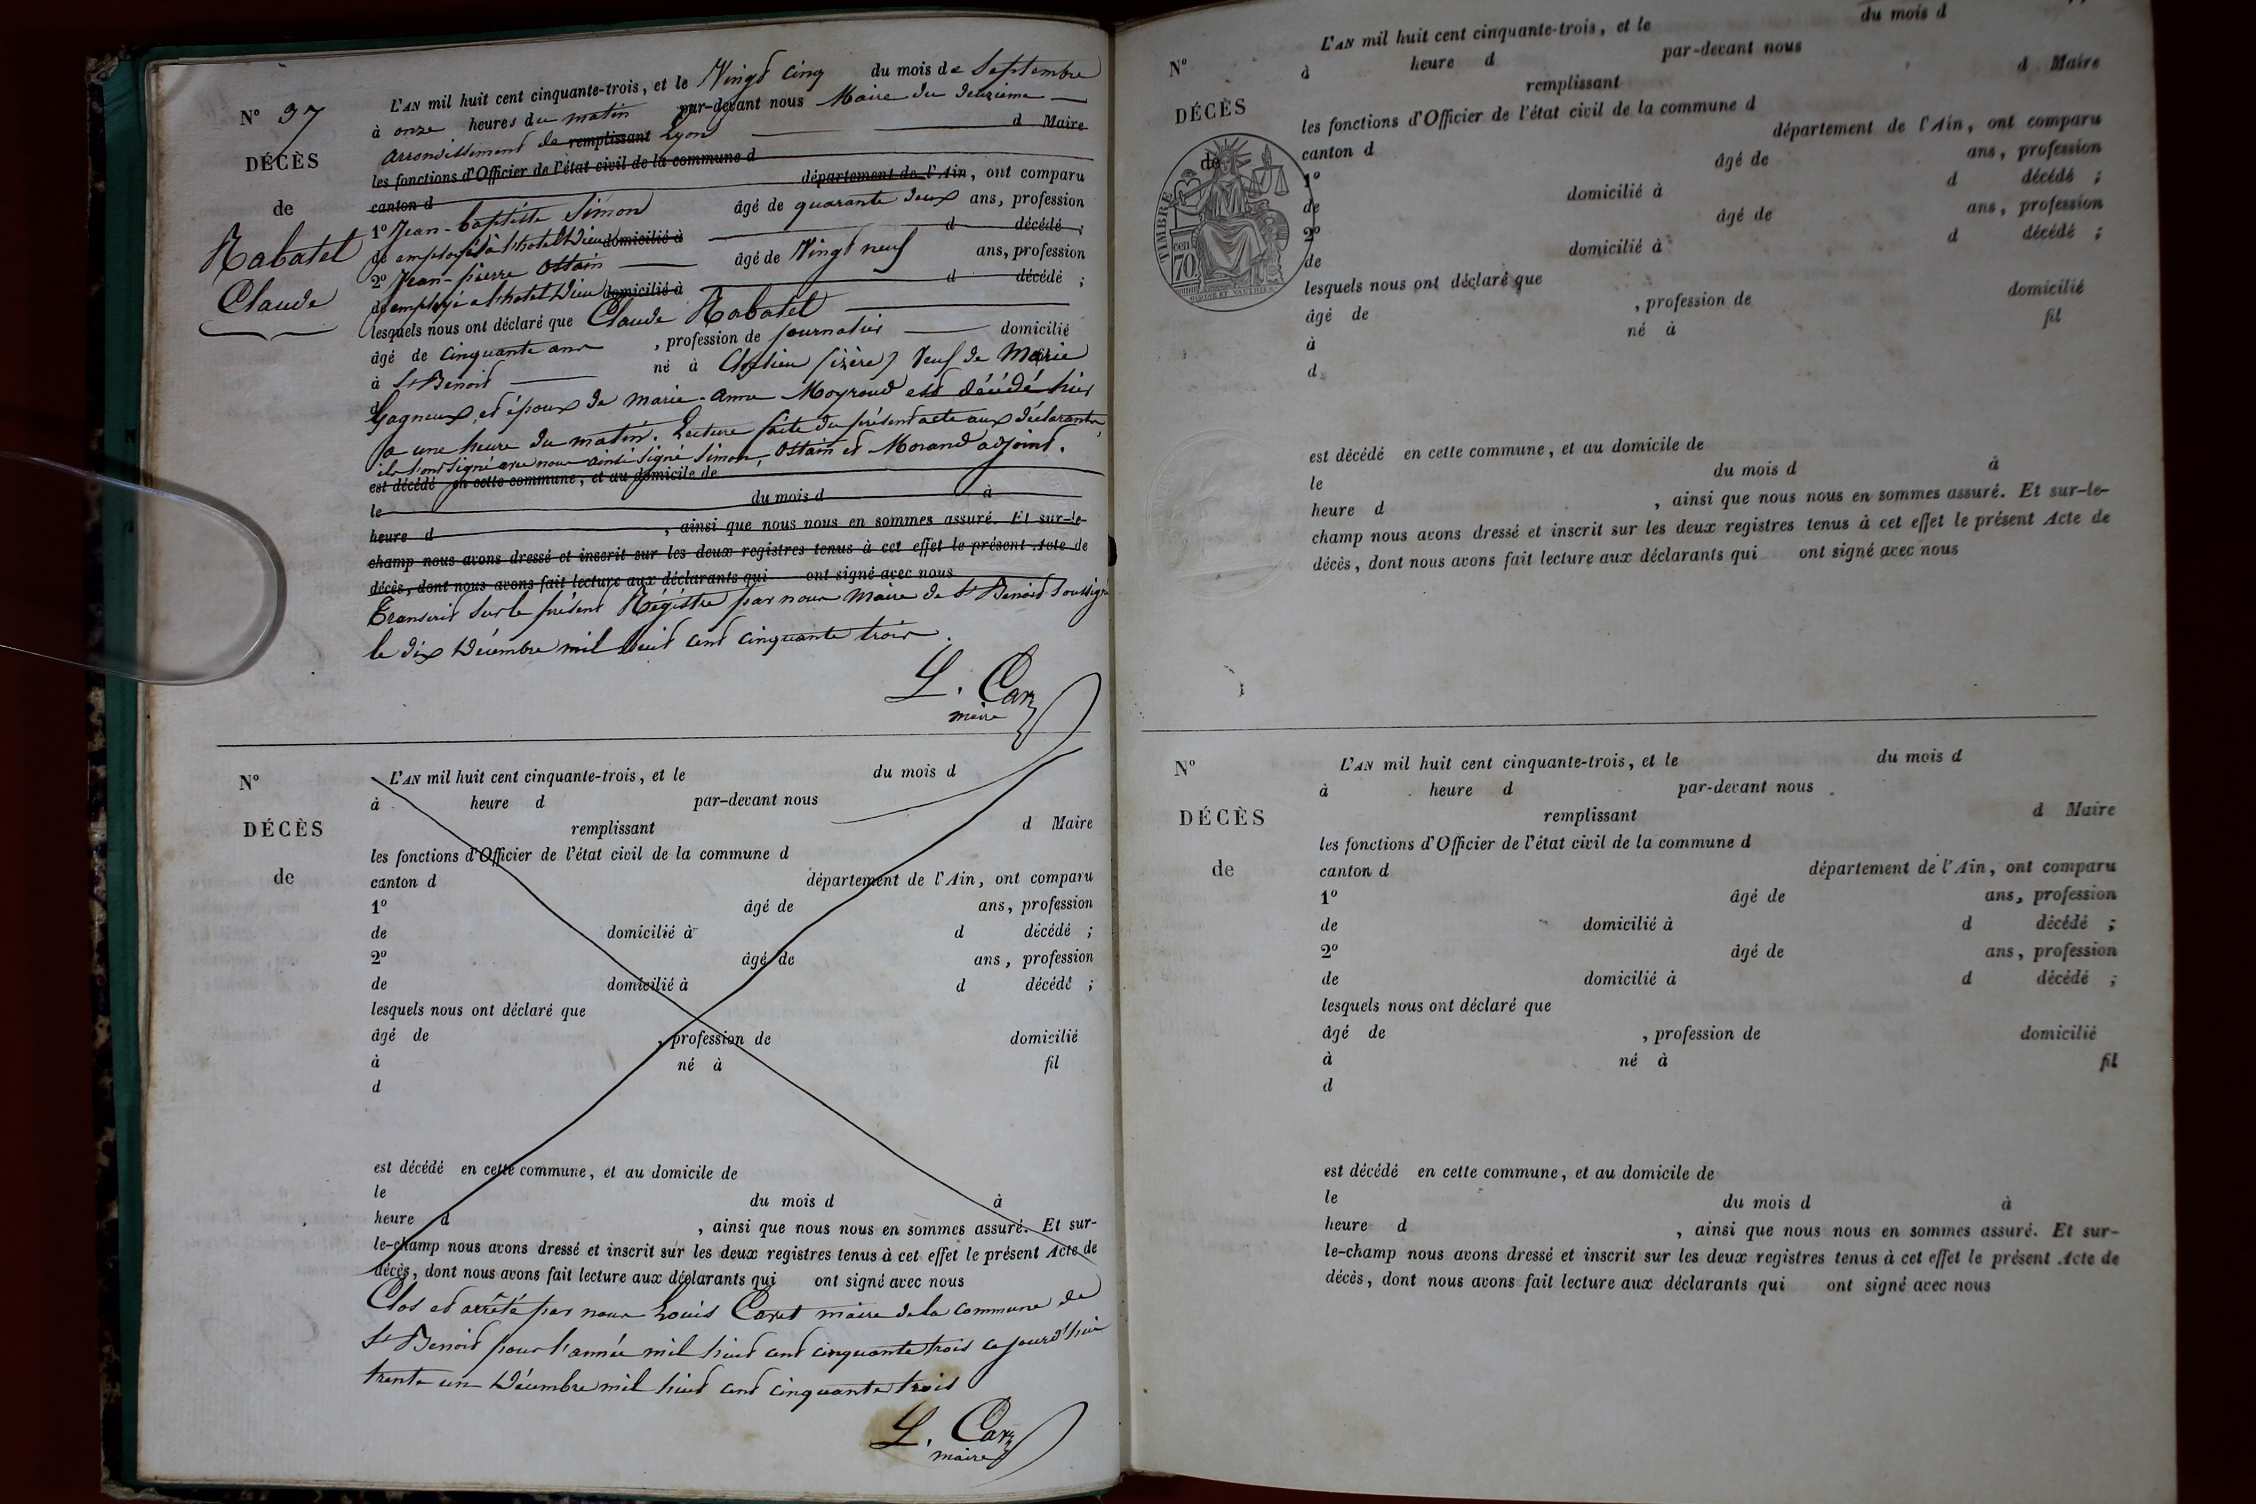 N° 37
DÉCÈS
de
Rabatel
Claude
L'AN mil huit cent cinquante-trois, et le Vingt cinq du mois de Septembre
à onze heures du matin par-devant nous Maire du deuxième
arrondissement de remplissant Lyon d Maire
les fonctions d'Officier de l'état civil de la commune d
canton d département de l'Ain, ont comparu
1° Jean-baptiste Simon âgé de quarante deux ans, profession
de employé à l'hotel Dieu domicilié à d décédé ;
2° Jean-pierre Ottain âgé de Vingt neuf ans, profession
de employé a l'hotel Dieu domicilié à d décédé ;
lesquels nous ont déclaré que Claude Rabatel
âgé de cinquante ans , profession de journalier domicilié
à St Benoit né à (izère) Veuf de Marie
Gagneux, et époux de marie-anne Moyroud est décédé hier
a une heure du matin. Lecture faite du présent acte aux déclarants,
ils l'ont signé avec nous ainsi signé Simon, Ottain et Morand adjoint.
est décédé en cette commune, et au domicile de
le du mois d à
heure d , ainsi que nous nous en sommes assuré. Et sur-le-
champ nous avons dressé et inscrit sur les deux registres tenus à cet effet le présent Acte de
décès, dont nous avons fait lecture aux déclarants qui ont signé avec nous
Transcrit sur le présent Régistre par nous Maire de St Benoit Soussigné
le dix Décembre mil huit cent cinquante trois.
L.
maire
N°
DÉCÈS
de
L'AN mil huit cent cinquante-trois, et le du mois d
à heure d par-devant nous
remplissant d Maire
les fonctions d'Officier de l'état civil de la commune d
canton d département de l'Ain, ont comparu
1° âgé de ans, profession
de domicilié à d décédé ;
2° âgé de ans, profession
de domicilié à d décédé ;
lesquels nous ont déclaré que
âgé de , profession de domicilié
à né à fil
d
est décédé en cette commune, et au domicile de
le du mois d à
heure d , ainsi que nous nous en sommes assuré. Et sur-
le-champ nous avons dressé et inscrit sur les deux registres tenus à cet effet le présent Acte de
décès, dont nous avons fait lecture aux déclarants qui ont signé avec nous
Clos et arrêté par nous Louis Caret maire de la commune de
St Benoit pour l'année mil huit cent cinquante trois ce jourd'hui
trente un Décembre mil huit cent cinquante trois
L.
maire
N°
DÉCÈS
de
TIMBRE
cen
70
L'AN mil huit cent cinquante-trois, et le du mois d
à heure d par-devant nous
remplissant d Maire
les fonctions d'Officier de l'état civil de la commune d
canton d département de l'Ain, ont comparu
1° âgé de ans, profession
de domicilié à d décédé ;
2° âgé de ans, profession
de domicilié à d décédé ;
lesquels nous ont déclaré que
âgé de , profession de domicilié
à né à fil
d
est décédé en cette commune, et au domicile de
le du mois d à
heure d , ainsi que nous nous en sommes assuré. Et sur-le-
champ nous avons dressé et inscrit sur les deux registres tenus à cet effet le présent Acte de
décès, dont nous avons fait lecture aux déclarants qui ont signé avec nous
N°
DÉCÈS
de
L'AN mil huit cent cinquante-trois, et le du mois d
à heure d par-devant nous
remplissant d Maire
les fonctions d'Officier de l'état civil de la commune d
canton d département de l'Ain, ont comparu
1° âgé de ans, profession
de domicilié à d décédé ;
2° âgé de ans, profession
de domicilié à d décédé ;
lesquels nous ont déclaré que
âgé de , profession de domicilié
à né à fil
d
est décédé en cette commune, et au domicile de
le du mois d à
heure d , ainsi que nous nous en sommes assuré. Et sur-
le-champ nous avons dressé et inscrit sur les deux registres tenus à cet effet le présent Acte de
décès, dont nous avons fait lecture aux déclarants qui ont signé avec nous